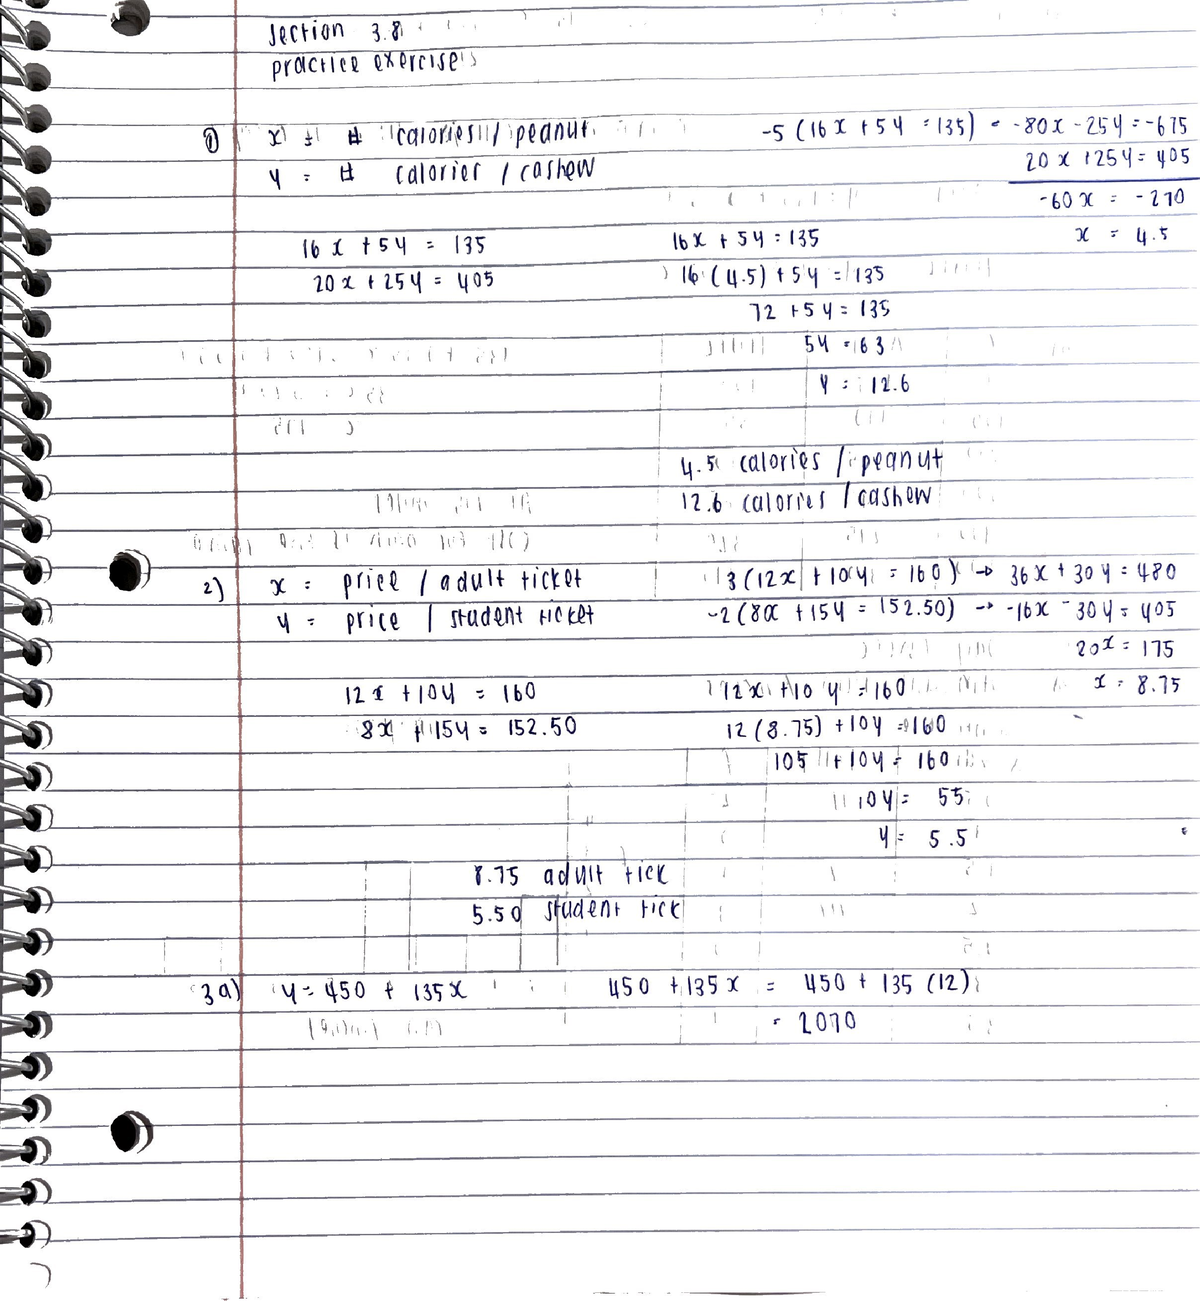 section 3.8
practice exercises
1) x = # calories / peanut
y = # calories / cashew
-5 (16x + 5y = 135) = -80x - 25y = -675
20x + 25y = 405
-60x = -270
x = 4.5
16x + 5y = 135
20x + 25y = 405
16x + 5y = 135
16 (4.5) + 5y = 135
72 + 5y = 135
5y = 63
y = 12.6
4.5 calories / peanut
12.6 calories / cashew
2) x = price / adult ticket
y = price / student ticket
3 (12x + 10y = 160) → 36x + 30y = 480
-2 (8x + 15y = 152.50) → -16x - 30y = 405
20x = 175
x = 8.75
12x + 10y = 160
8x + 15y = 152.50
12x + 10y = 160
12 (8.75) + 10y = 160
105 + 10y = 160
10y = 55
y = 5.5
8.75 adult tick
5.50 student tick
3a) y = 450 + 135x
450 + 135x = 450 + 135 (12)
= 2070